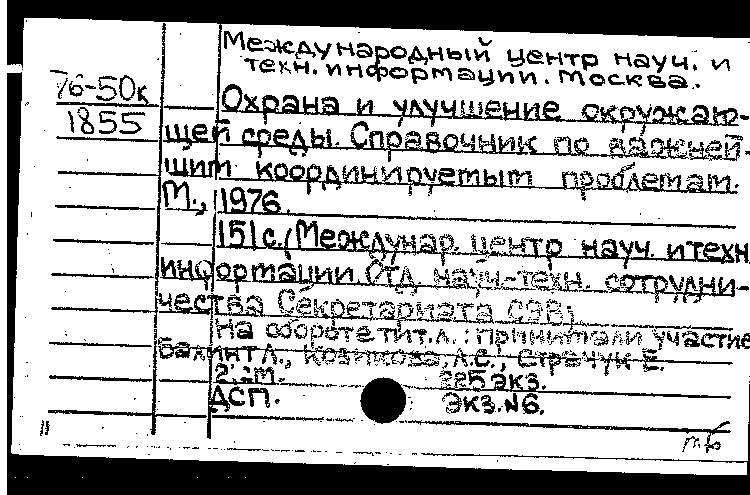 Международный центр науч. и
техн. информации. Москва.
76-50к
1855
Охрана и улучшение окружаю-
щей среды. Справочник по важней-
шим координируемым проблемам.
М., 1976.
151с. (Междунар. центр науч. и техн
информации. Отд. науч-техн. сотрудни-
чества Секретариата СЭВ)
На обороте тит.л.: принимали участие
Балинт Л., Козикова, Л.С., Страчук Е.
225 экз.
ДСП. экз.№6.